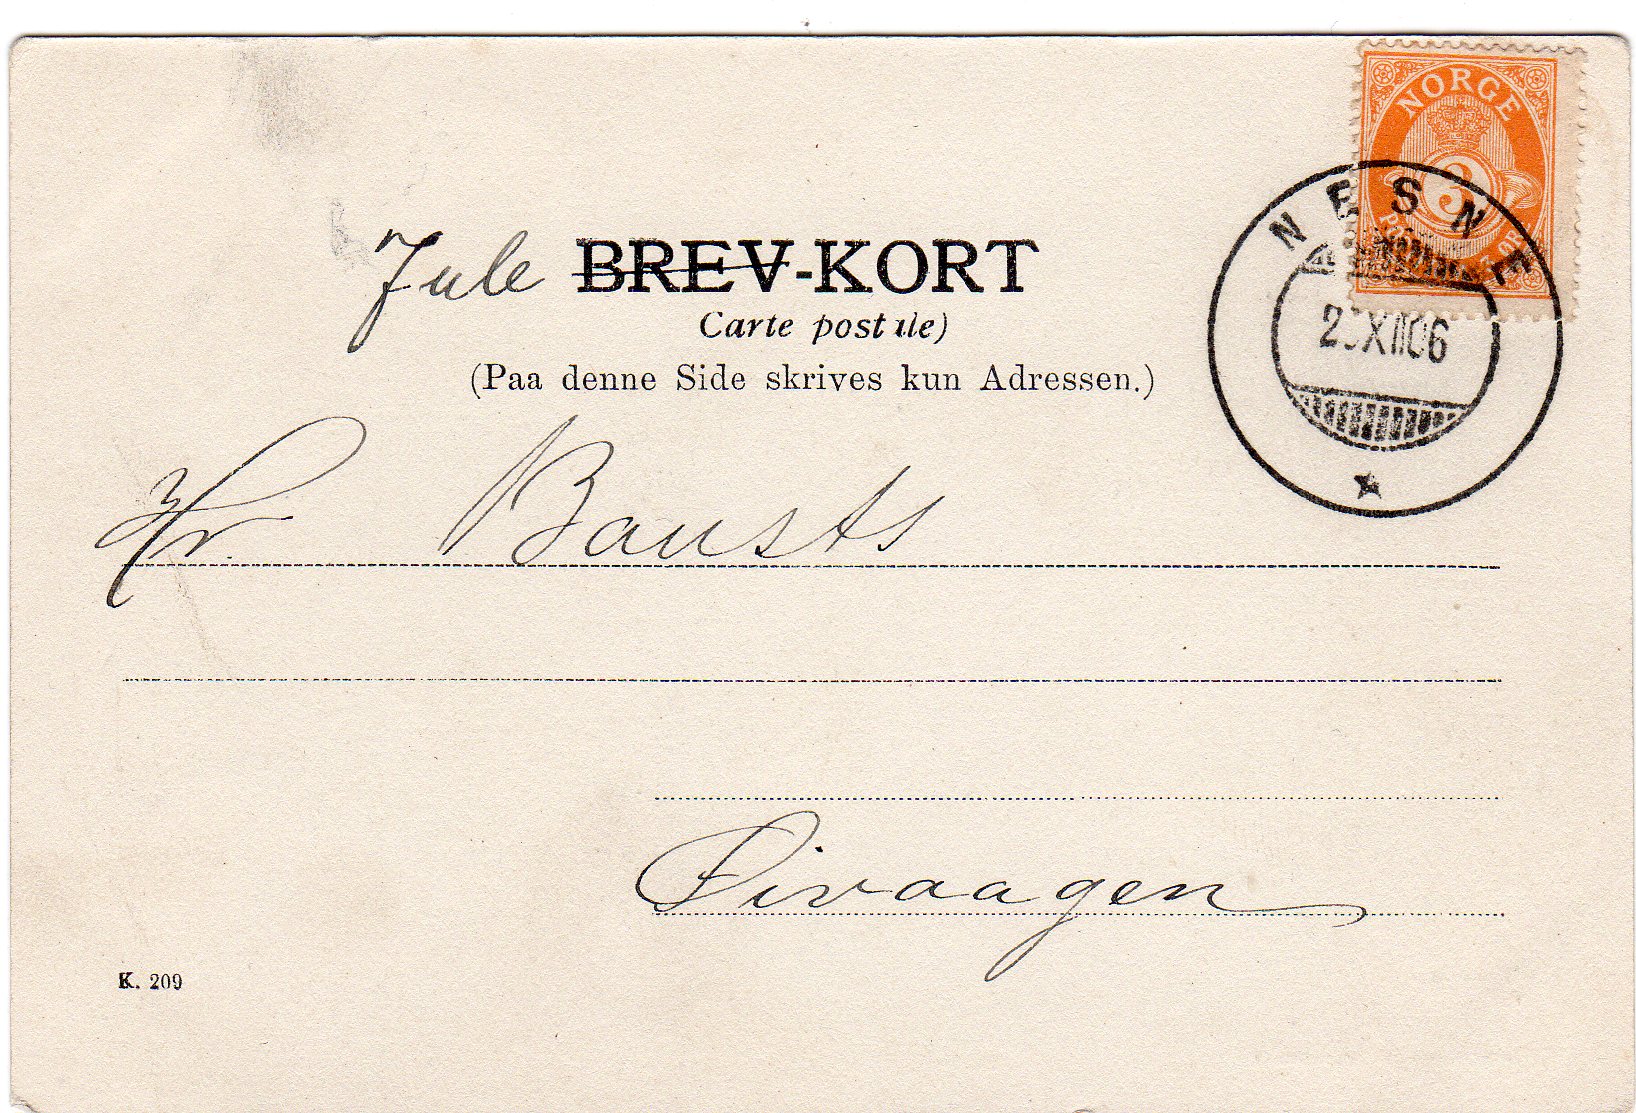 NORGE
3
NESNE
XII 06
Jule BREV-KORT
Carte postale)
(Paa denne Side skrives kun Adressen.)
Hr. Bausts
K. 209